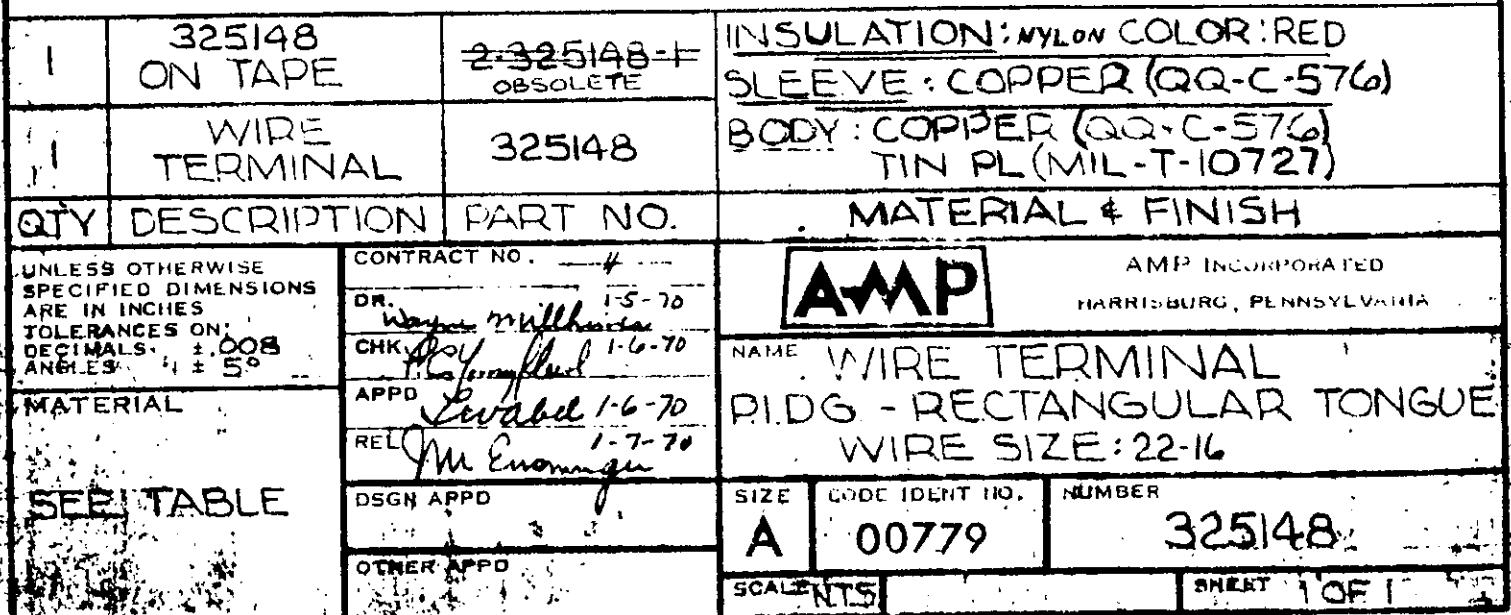 1
325148
ON TAPE
2-325148-1
OBSOLETE
INSULATION: NYLON COLOR: RED
SLEEVE: COPPER (QQ-C-576)
BODY: COPPER (QQ-C-576)
TIN PL (MIL-T-10727)
1
WIRE
TERMINAL
325148
QTY
DESCRIPTION
PART NO.
MATERIAL & FINISH
UNLESS OTHERWISE
SPECIFIED DIMENSIONS
ARE IN INCHES
TOLERANCES ON:
DECIMALS ±.008
ANGLES ± 5°
MATERIAL
SEE TABLE
CONTRACT NO.
DR. 1-5-70
Wayne
CHK 1-6-70
APPD 1-6-70
REL 1-7-70
DSGN APPD
OTHER APPD
AMP
AMP INCORPORATED
HARRISBURG, PENNSYLVANIA
NAME
WIRE TERMINAL
P.I.D.G - RECTANGULAR TONGUE
WIRE SIZE: 22-16
SIZE
A
CODE IDENT NO.
00779
NUMBER
325148
SCALE NTS
SHEET 1 OF 1